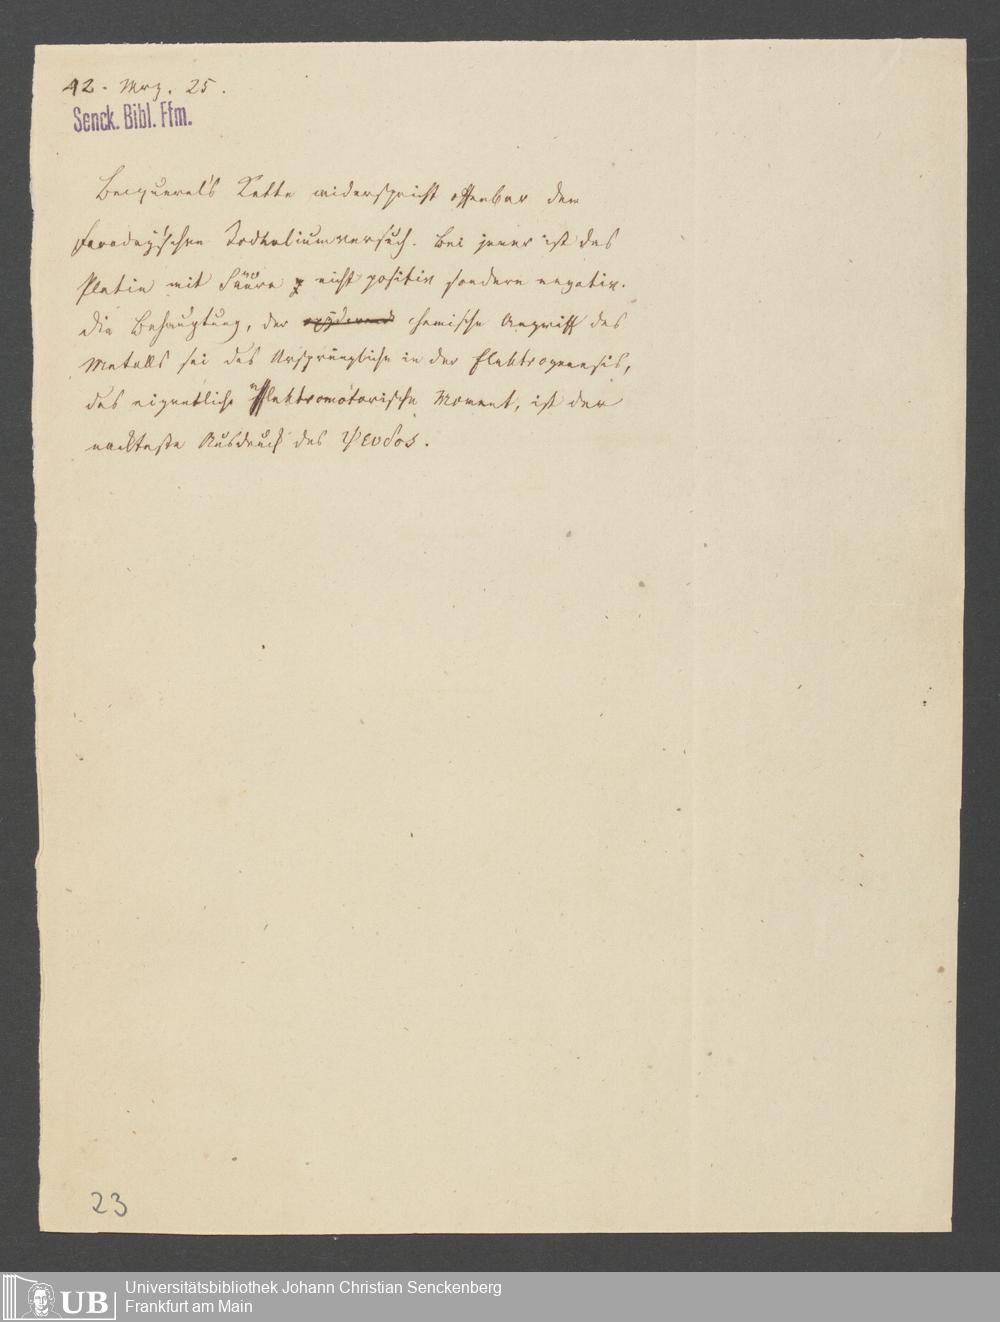 42. Mrz. 25.
Senck. Bibl. Ffm.
Becquerel's Kette widerspricht offenbar dem
Faraday'schen Jodkaliumversuch. Bei jener ist das
Platin mit Säure nicht positiv sondern negativ.
Die Behauptung, der oxydirende chemische Angriff des
Metalls sei das Ursprüngliche in der Elektrogenesis,
das eigentliche elektromotorische Moment, ist der
nackteste Ausdruck des Ψευδος.
23
UB
Universitätsbibliothek Johann Christian Senckenberg
Frankfurt am Main